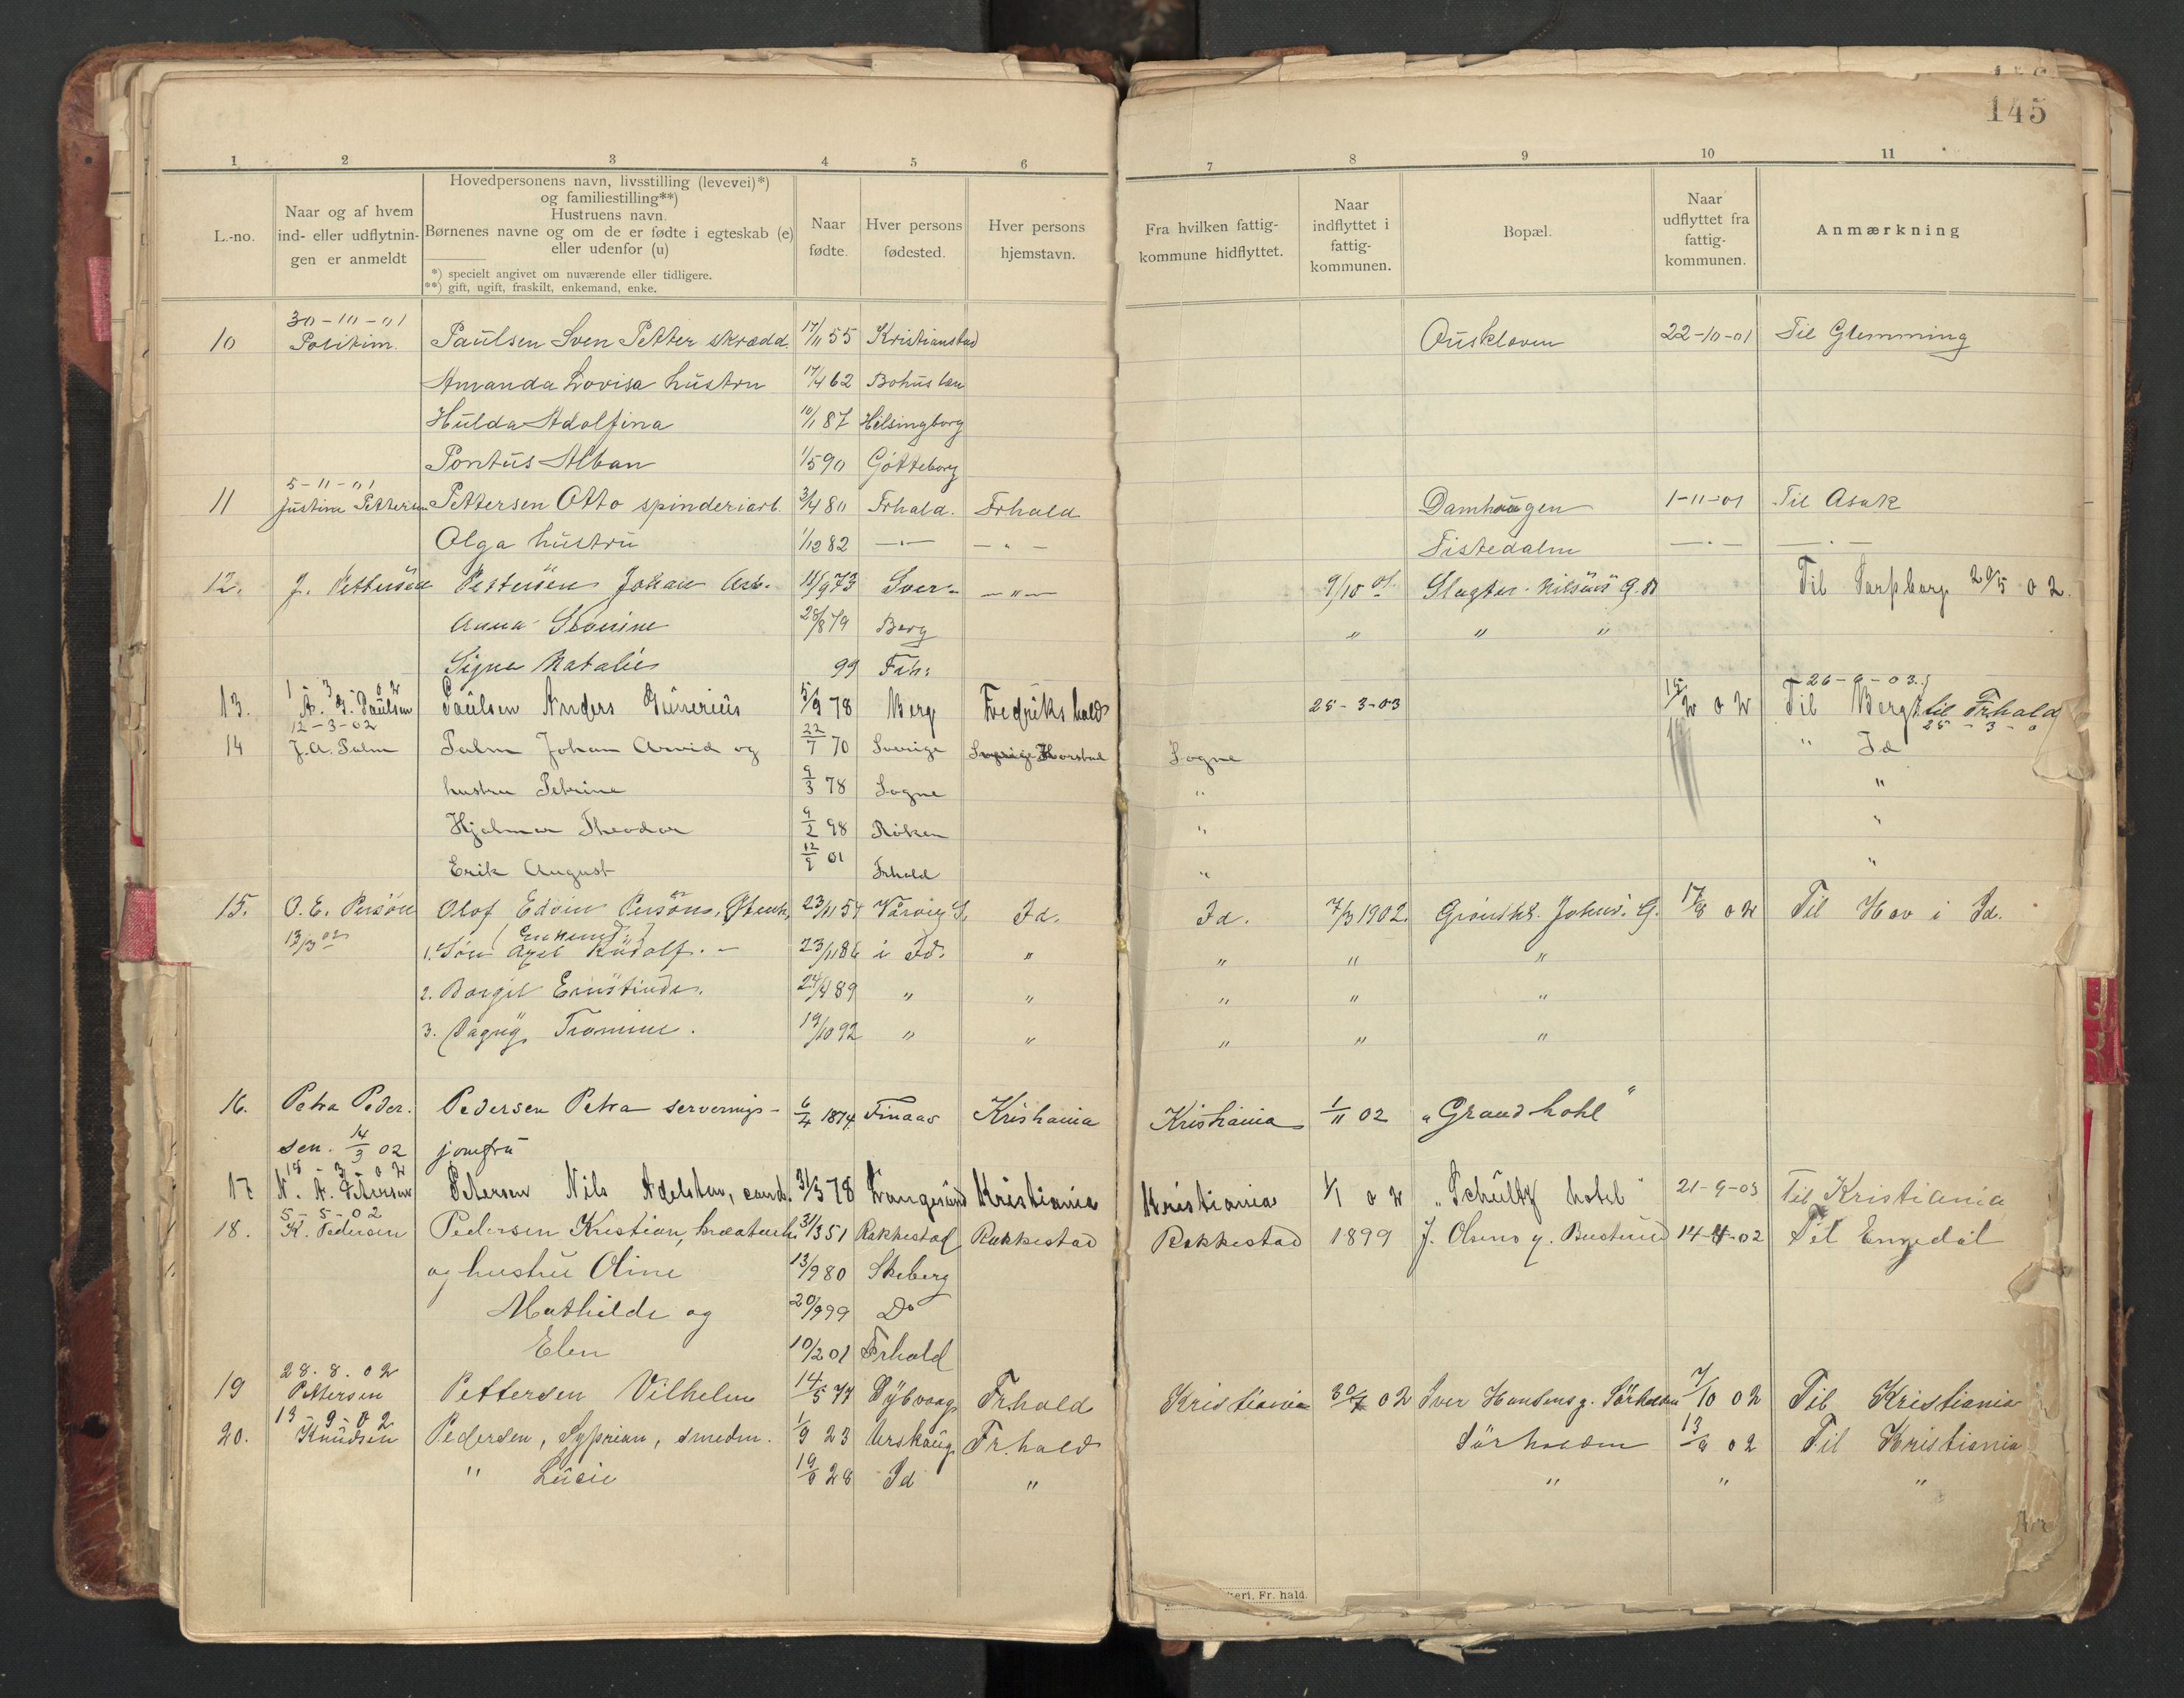 145
1 2 3 4 5 6 7 8 9 10 11
L.-no.
Naar og af hvem
ind- eller udflytnin-
gen er anmeldt
Hovedpersonens navn, livsstilling (levevei)*)
og familiestilling**)
Hustruens navn.
Børnenes navne og om de er fødte i egteskab (e)
eller udenfor (u)
*) specielt angivet om nuværende eller tidligere.
**) gift, ugift, fraskilt, enkemand, enke.
Naar
fødte.
Hver persons
fødested.
Hver persons
hjemstavn.
Fra hvilken fattig-
kommune hidflyttet.
Naar
indflyttet i
fattig-
kommunen.
Bopæl.
Naar
udflyttet fra
fattig-
kommunen.
Anmærkning
30-10-01
10 Politim. Paulsen Sven Petter skrædd. 17/11 55 Kristianstad Ouskloven 22-10-01 Til Glemming
Amanda Lovisa hustru 17/4 62 Bohuslæn
Hulda Adolfina 10/1 87 Helsingborg
Pontus Alban 1/5 90 Götteborg
5-11-01
11 Justine Pettersen Pettersen Otto spinderiarb. 3/4 80 Frhald. Frhald Damhaugen 1-11-01 Til Asak
Olga hustru 1/12 82 —"— —"— Tistedalen —"— —"—
12. J. Pettersen Pettersen Johan Arb. 11/9 73 Sver. —"— 9/10 01. Slagter Nilsens G. Til Sarpsborg 20/5 02.
Anna Severine 28/8 79 Berg " " "
Signe Natalie 99 Frh:
1-3-02 26-9-03.
13. A. G. Paulsen Paulsen Anders Gunerius 5/9 78 Berg Fredrikshald 25-3-03 15/2 02 Til Berg til Frhald
12-3-02 25-3-0
14 J. A. Palm Palm Johan Arvid og 22/7 70 Sverige Sogne " Id
hustru Petrine 9/3 78 Sogne " "
Hjalmar Theodor 9/2 98 Röken " "
Erik August 12/9 01 Frhald " "
15. O. E. Persön Olof Edvin Persön, 23/11 54 Id. Id. 7/3 1902. G. 17/8 02 Til Hov i Id.
13/3 02
1. Sön Axel Rudolf. — 23/11 86 i Id. " " " "
2. Borgil Ernstinde. 24/4 89 " " " " "
3. Dagny Tramine. 19/10 92 " " " " "
16. Petra Peder- Pedersen Petra serverings- 6/4 1874 Finaas Kristiania Kristiania 1/11 02 "Grand hotel"
sen. 14/3 02 jomfru
18-3-02
17 N. A. Petersen Petersen Nils Adelsten, cand. 31/3 78 Langesund Kristiania Kristiania 1/1 02 "Schultz hotel" 21-9-03 Til Kristiania
5-5-02
18. K. Pedersen Pedersen Kristian, 31/3 51 Rakkestad Rakkestad Rakkestad 1899 J. Olsens g. Busterud 14-4-02 Til Engedal
og hustru Oline 13/9 80 Skeberg
Mathilde og 20/9 99 Do
Elen 10/2 01 Frhald
28.8.02
19 Pettersen Pettersen Vilhelm 14/5 77 Dybvaag Frhald Kristiania 30/7 02 Iver Hansens g. Sörhalden 7/10 02 Til Kristiania
13-9-02
20. Knudsen Pedersen, Syprian, smedm. 1/9 23 Urskoug Fr.hald Sörhalden 13/9 02 Til Kristiania
" Lucie 19/9 28 Id " " " "
keri, Fr. hald.